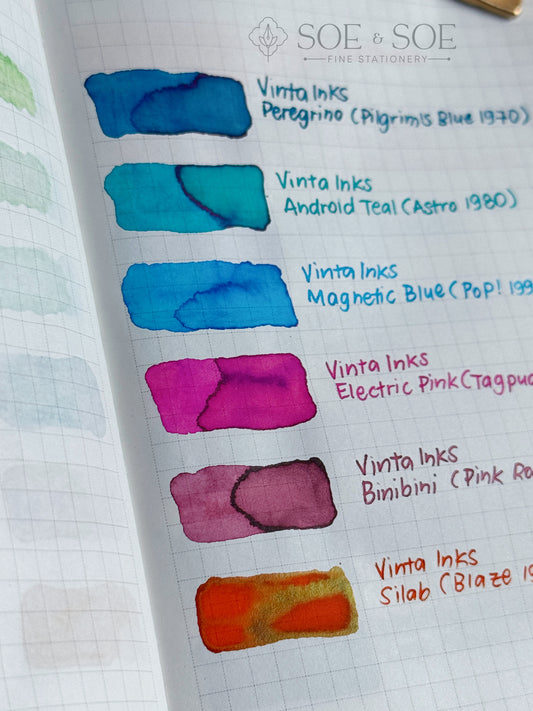 SOE & SOE
FINE STATIONERY
Vinta Inks
Peregrino (Pilgrim's Blue 1970)
Vinta Inks
Android Teal (Astro 1980)
Vinta Inks
Magnetic Blue (POP! 199
Vinta Inks
Electric Pink (Tagpua
Vinta Inks
Binibini (Pink Ro
Vinta Inks
Silab (Blaze 19